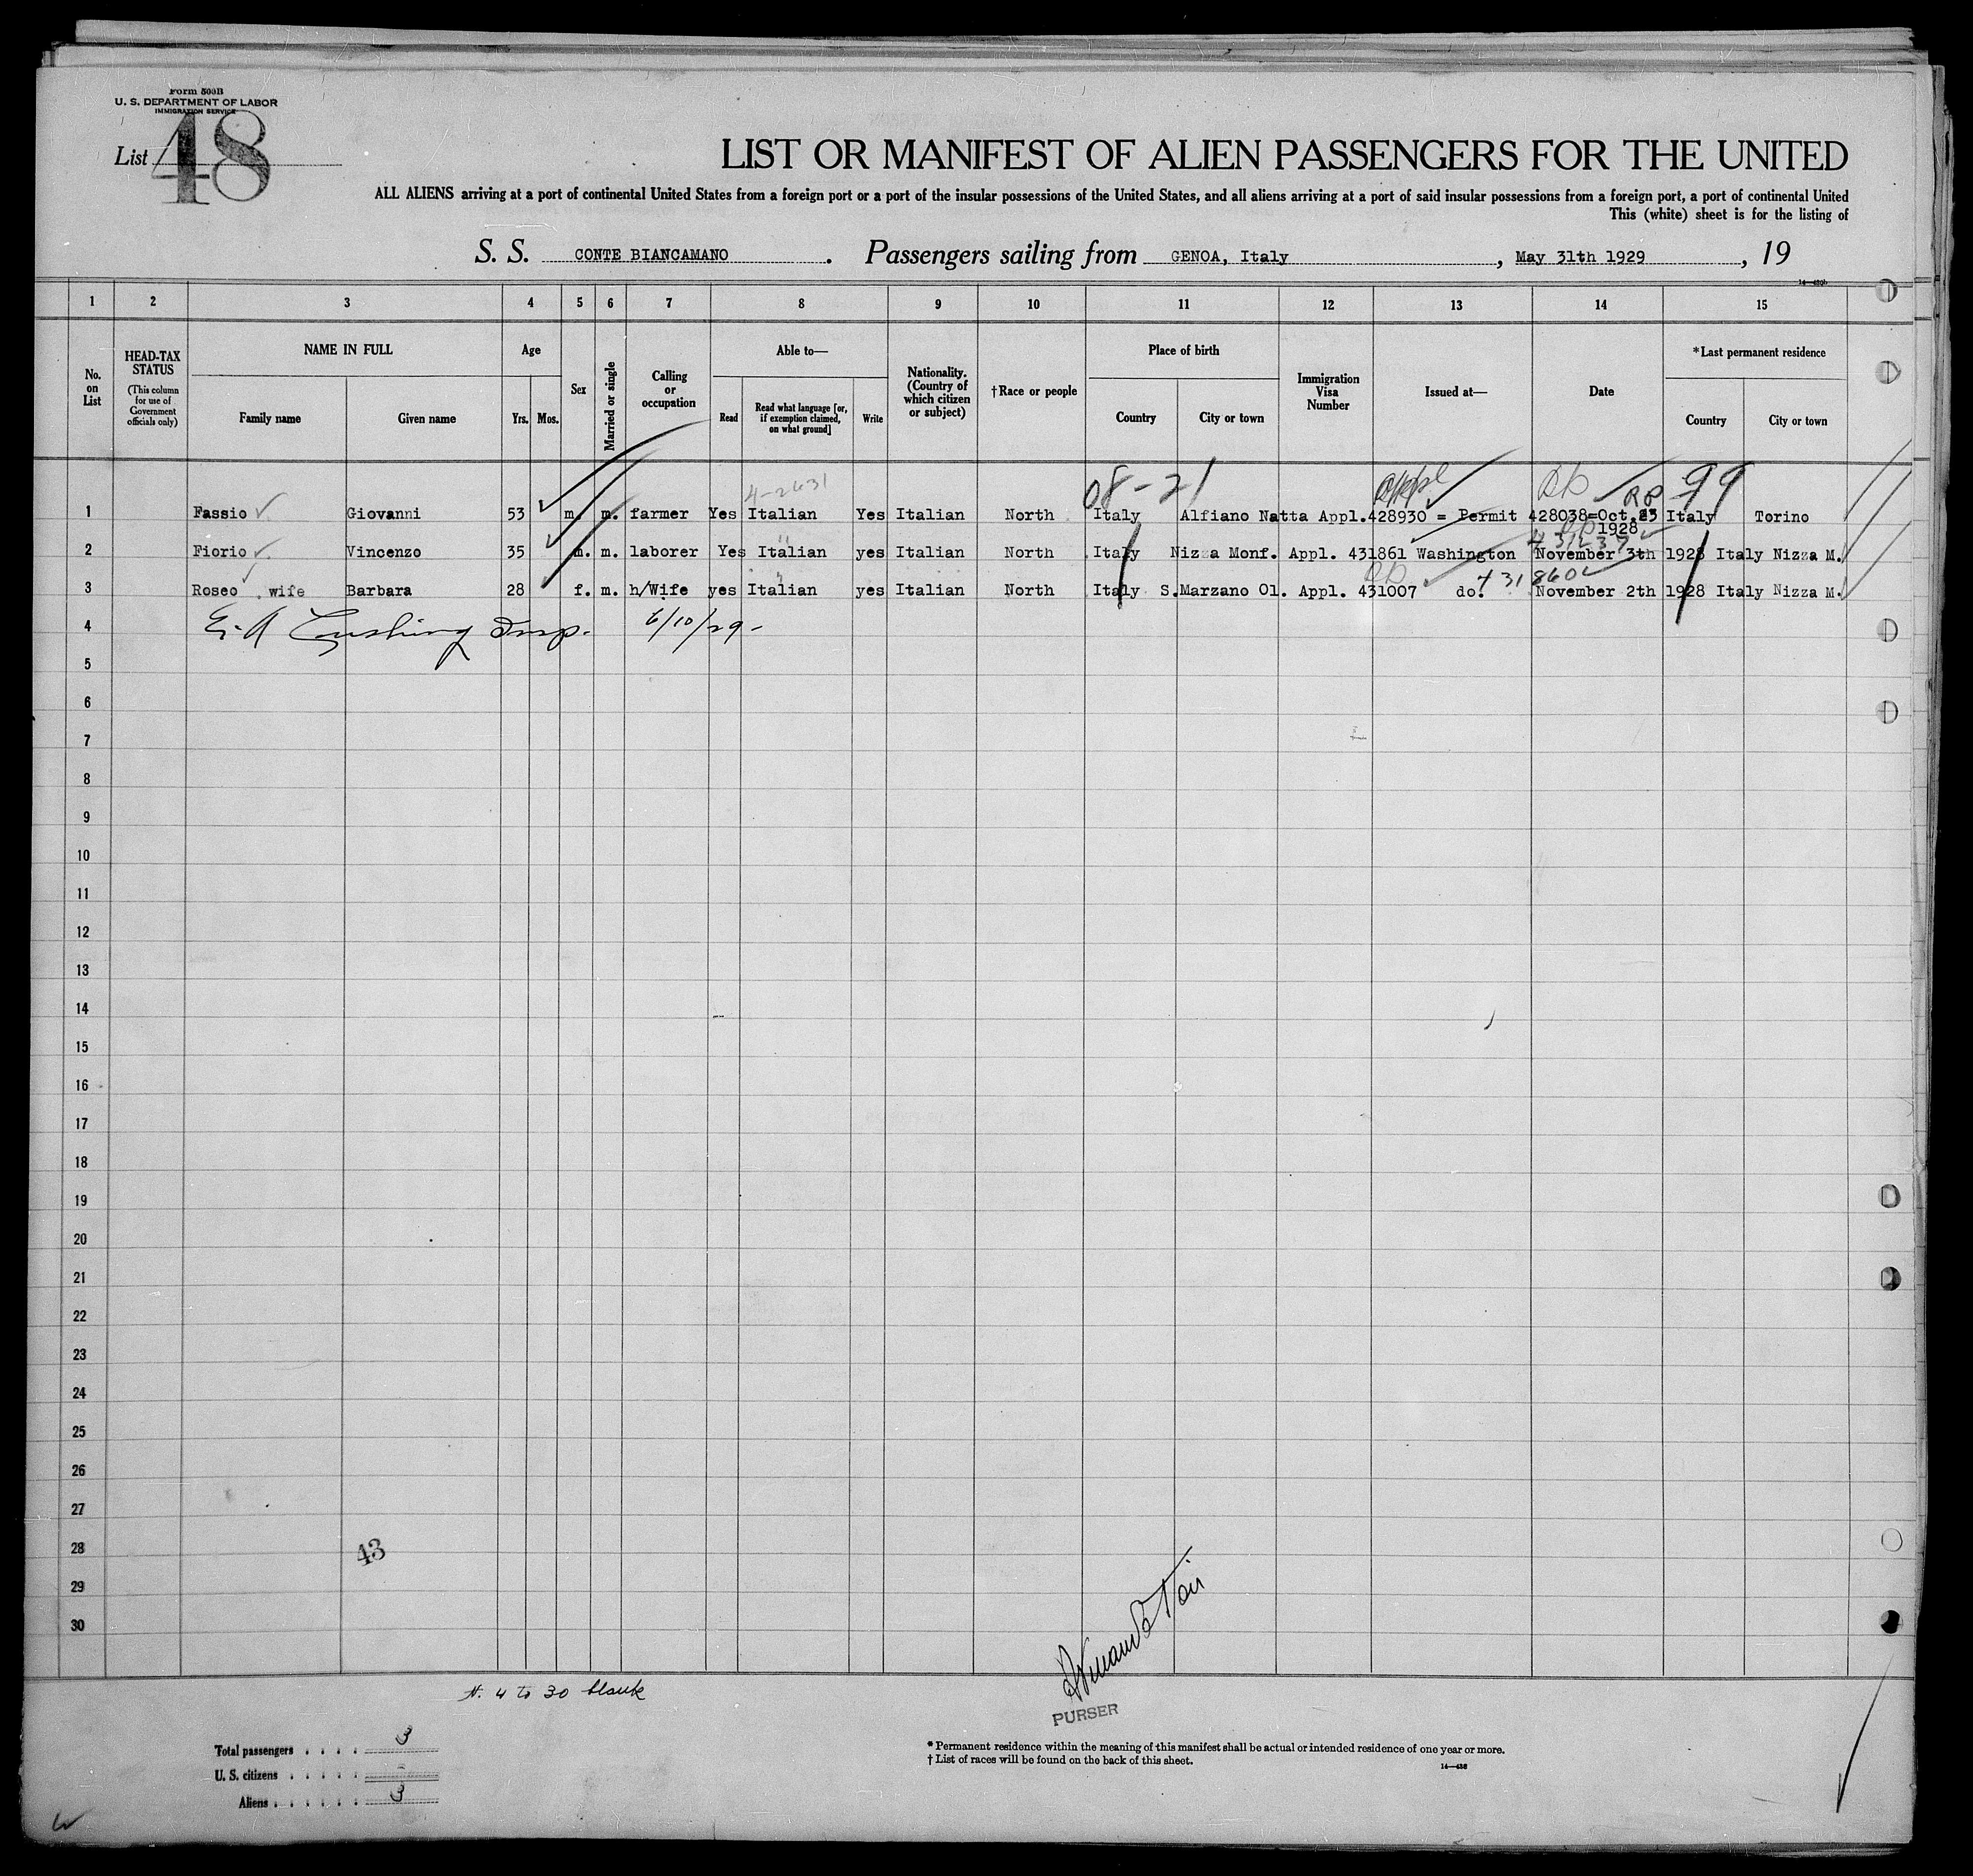 Form 500B
U. S. DEPARTMENT OF LABOR
IMMIGRATION SERVICE
List 48
LIST OR MANIFEST OF ALIEN PASSENGERS FOR THE UNITED
ALL ALIENS arriving at a port of continental United States from a foreign port or a port of the insular possessions of the United States, and all aliens arriving at a port of said insular possessions from a foreign port, a port of continental United
This (white) sheet is for the listing of
S. S. CONTE BIANCAMANO . Passengers sailing from GENOA, Italy , May 31th 1929 , 19
1 2 3 4 5 6 7 8 9 10 11 12 13 14 15
No. on List
HEAD-TAX STATUS (This column for use of Government officials only)
NAME IN FULL
Family name Given name
Age
Yrs. Mos.
Sex
Married or single
Calling or occupation
Able to—
Read Read what language [or, if exemption claimed, on what ground] Write
Nationality. (Country of which citizen or subject)
†Race or people
Place of birth
Country City or town
Immigration Visa Number
Issued at—
Date
*Last permanent residence
Country City or town
4-2631 08-21 99
1 Fassio Giovanni 53 m. m. farmer Yes Italian Yes Italian North Italy Alfiano Natta Appl.428930 = Permit 428038=Oct. 23 Italy Torino
1928
2 Fiorio Vincenzo 35 m. m. laborer Yes Italian yes Italian North Italy Nizza Monf. Appl. 431861 Washington November 3th 1928 Italy Nizza M.
431860
3 Roseo . wife Barbara 28 f. m. h/Wife yes Italian yes Italian North Italy S.Marzano Ol. Appl. 431007 do. November 2th 1928 Italy Nizza M.
4 E. A Cushing Insp. 6/10/29-
5
6
7
8
9
10
11
12
13
14
15
16
17
18
19
20
21
22
23
24
25
26
27
28 43
29
30
N. 4 to 30 blank
PURSER
Total passengers . . . . 3
U. S. citizens . . . . . -
Aliens . . . . . . 3
* Permanent residence within the meaning of this manifest shall be actual or intended residence of one year or more.
† List of races will be found on the back of this sheet.